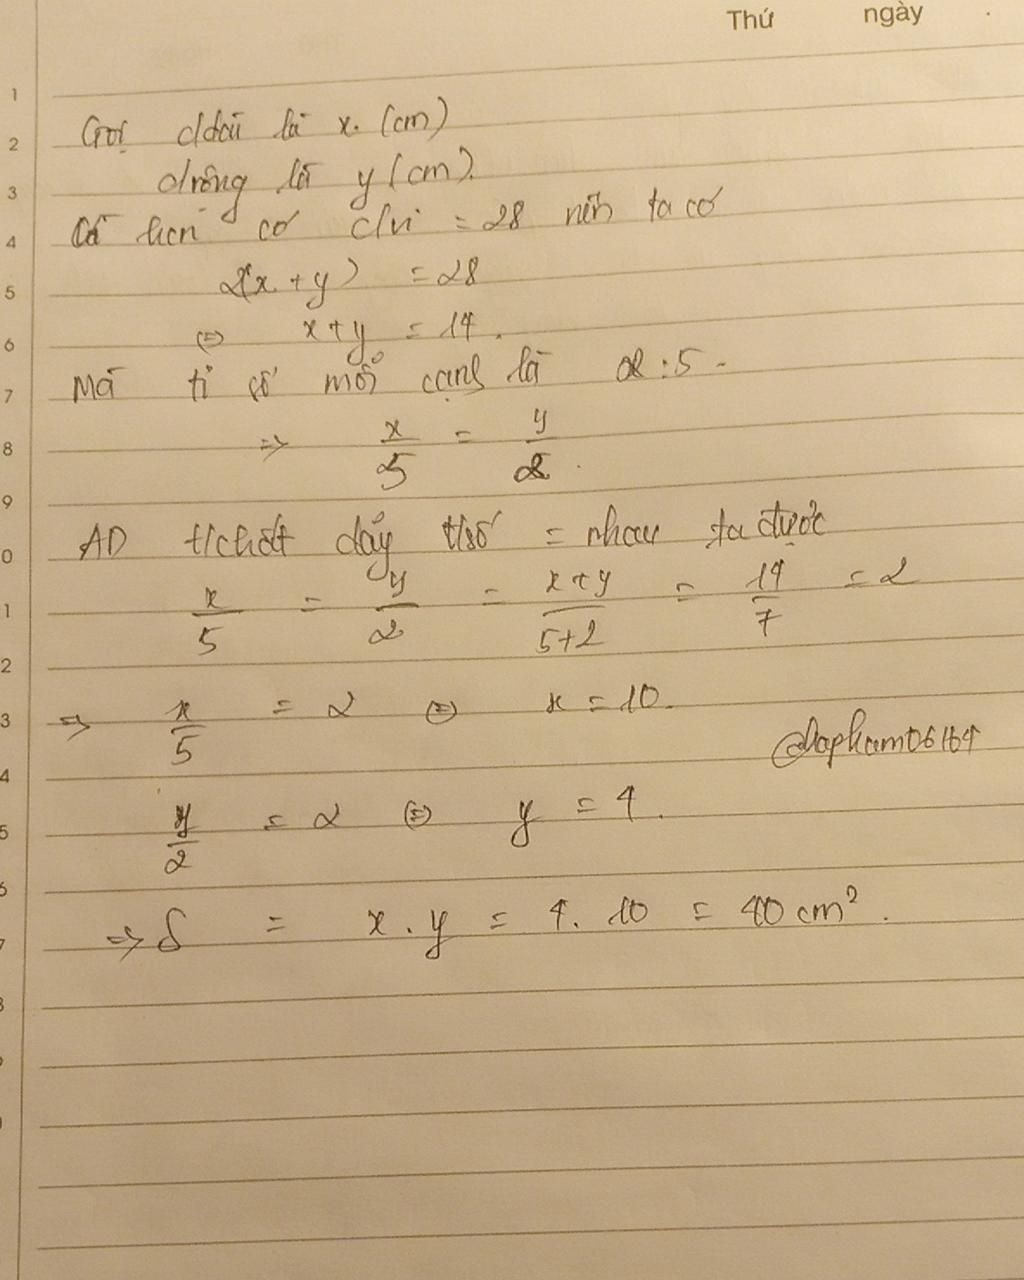 Thứ ngày
1
2 Gọi c/dài là x (cm)
3 c/rộng là y (cm).
4 có c/vi = 28 nên ta có
5 2(x + y) = 28
6 ⇔ x+y = 14.
7 Mà tỉ số mỗi cạnh là 2:5.
8 ⇒ x/5 = y/2.
9
0 AD t/chất dãy t/số = nhau ta được
1 x/5 = y/2 = x+y/5+2 = 14/7 = 2
2
3 ⇒ x/5 = 2 ⇔ x = 10.
@hapham06164
4
5 y/2 = 2 ⇔ y = 4.
6
7 ⇒ S = x.y = 4.10 = 40 cm².